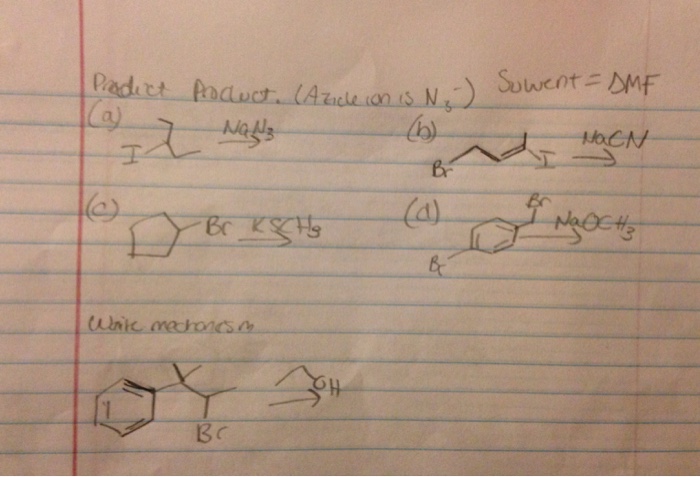 Predict Product. (Azide ion is N3-) Solvent = DMF
(a) I NaN3
(b) Br I NaCN
(c) Br KSCH3
(d) Br Br NaOCH3
Write mechanism
Br OH